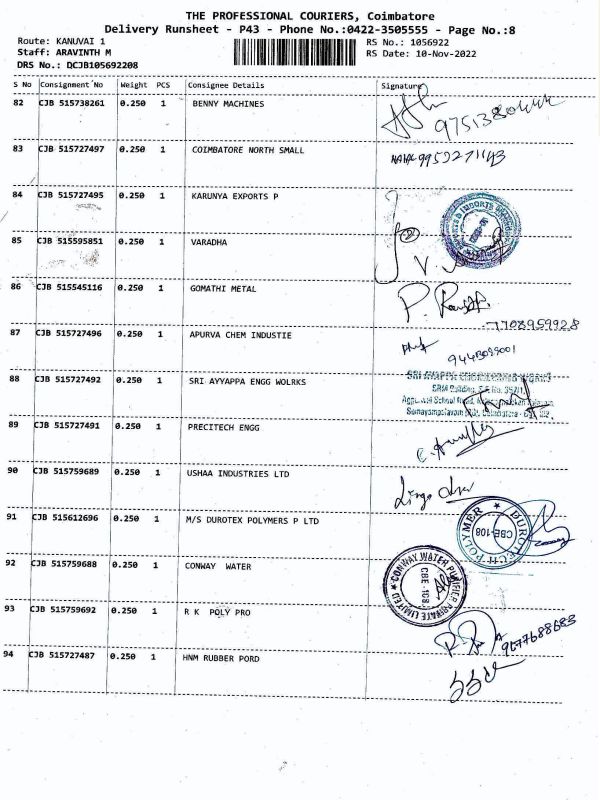 THE PROFESSIONAL COURIERS, Coimbatore
Delivery Runsheet - P43 - Phone No.:0422-3505555 - Page No.:8
Route: KANUVAI 1
Staff: ARAVINTH M
DRS No.: QCJB105692208
RS No.: 1056922
RS Date: 10-Nov-2022
S No Consignment No Weight PCS Consignee Details Signature
82 CJB 515738261 0.250 1 BENNY MACHINES
83 CJB 515727497 0.250 1 COIMBATORE NORTH SMALL
84 CJB 515727495 0.250 1 KARUNYA EXPORTS P
85 CJB 515595851 0.250 1 VARADHA
86 CJB 515545116 0.250 1 GOMATHI METAL
7708959928
87 CJB 515727496 0.250 1 APURVA CHEM INDUSTIE
88 CJB 515727492 0.250 1 SRI AYYAPPA ENGG WOLRKS
SRI AYAPPA ENGINEERING WORKS
89 CJB 515727491 0.250 1 PRECITECH ENGG
90 CJB 515759689 0.250 1 USHAA INDUSTRIES LTD
91 CJB 515612696 0.250 1 M/S DUROTEX POLYMERS P LTD
CBE-108
92 CJB 515759688 0.250 1 CONWAY WATER
CONWAY WATER PURIFIER PRIVATE LIMITED
CBE - 108
93 CJB 515759692 0.250 1 R K POLY PRO
9677688683
94 CJB 515727487 0.250 1 HNM RUBBER PORD